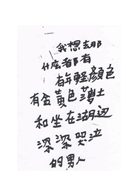 我想去那
什麼都有
有年輕顏色
有金黃色薄土
和坐在湖边
深深哭泣
的男人